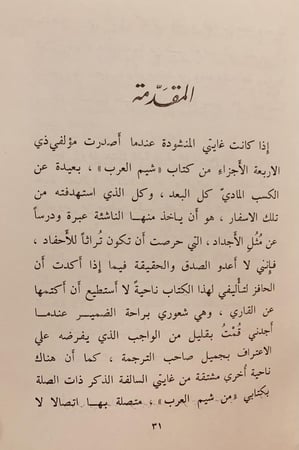 المقدّمة
إذا كانت غايتي المنشودة عندما أصدرت مؤلفي ذي
الاربعة الأجزاء من كتاب « شيم العرب » ، بعيدة عن
الكسب الماديّ كل البعد ، وكل الذي استهدفته من
تلك الاسفار ، هو أن يأخذ منهـا الناشئة عبرة ودرساً
عن مُثُلِ الأجداد ، التي حرصت أن تكون تُراثاً للأحفاد ،
فإنني لا أعدو الصدق والحقيقة فيما إذا أكدت أن
الحافز لتأليفي لهذا الكتاب ناحيةً لا أستطيع أن أكتمها
عن القاري ، وهي شعوري براحة الضميـر عندمـا
أجدني قُمْتُ بقليل من الواجب الذي يفرضه علي
الاعتراف بجميل صاحب الترجمة ، كما أن هناك
ناحية أُخرى مشتقة من غايتي السالفة الذكر ذات الصلة
بكتابي « من شيم العرب » ، متصلة بهـا اتصالا لا
٣١